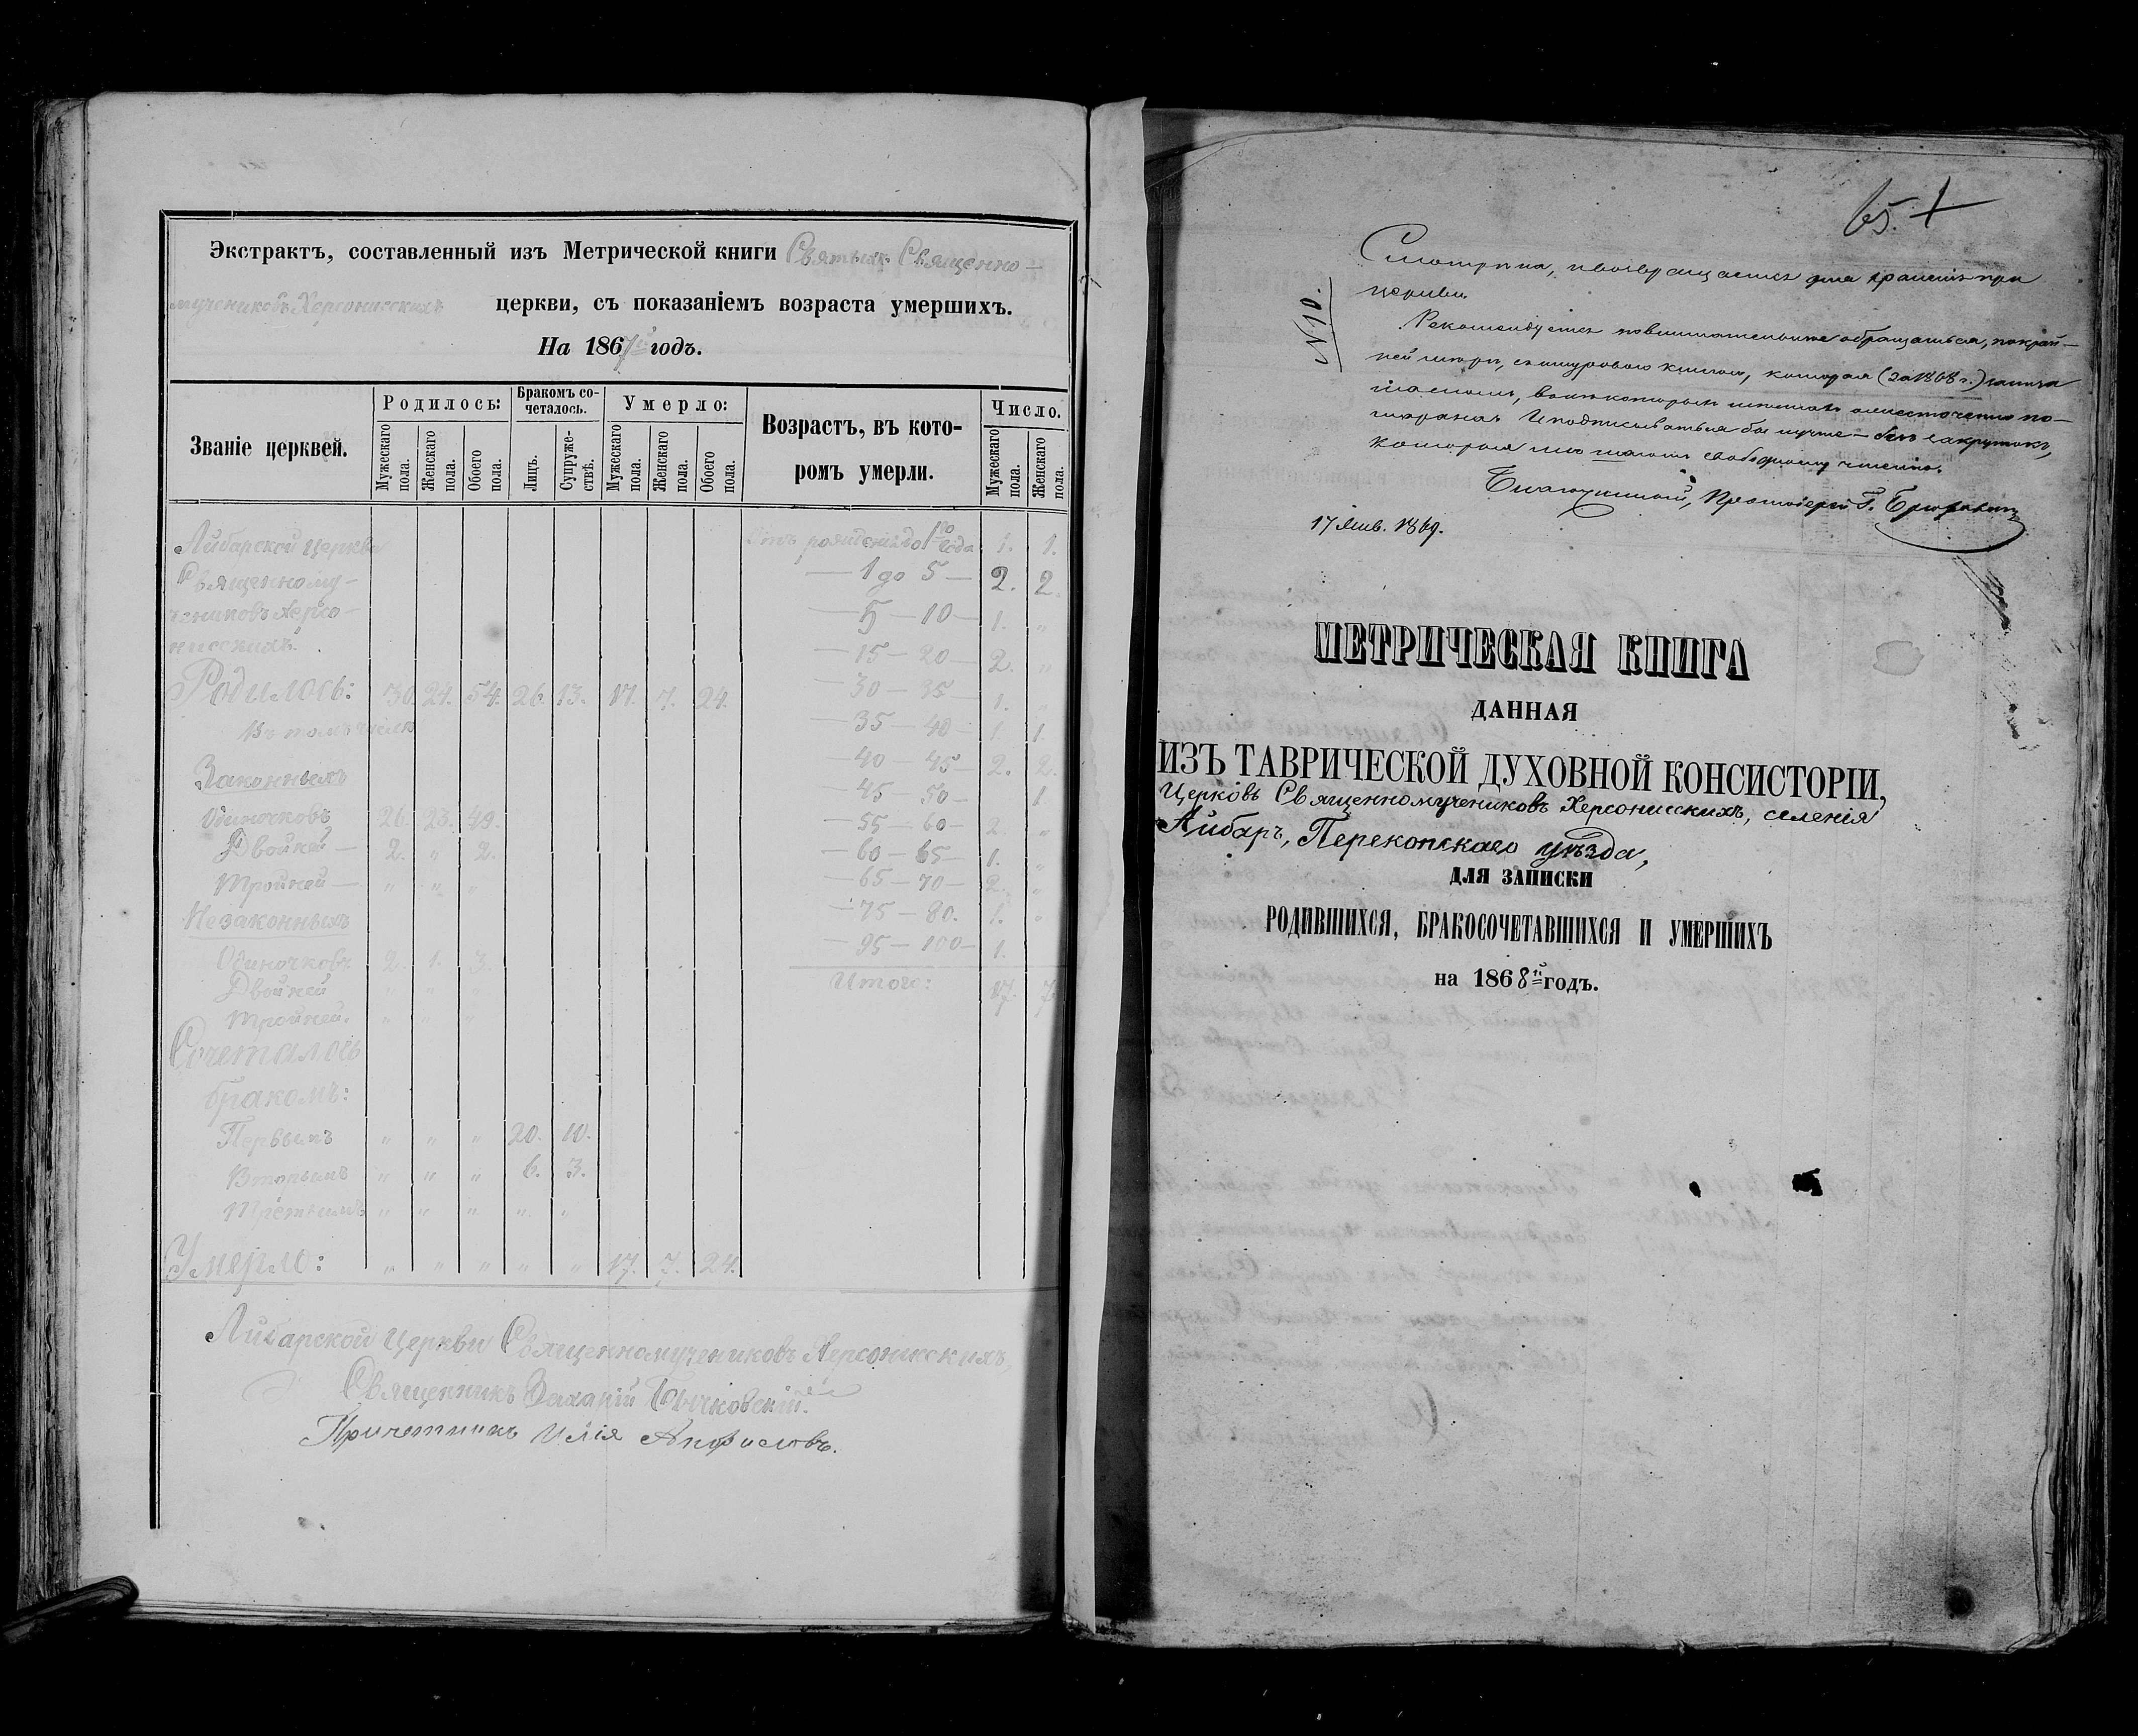 Экстрактъ, составленный изъ Метрической книги Святыхъ Священно-
мучениковъ Херсонисскихъ церкви, съ показаніемъ возраста умершихъ.
На 1867й годъ.
Званіе церквей.
Родилось:
Бракомъ со-
четалось.
Умерло:
Возрастъ, въ кото-
ромъ умерли.
Число.
Мужескаго пола.
Женскаго пола.
Обоего пола.
Лицъ.
Супруже-
ствъ.
Мужескаго пола.
Женскаго пола.
Обоего пола.
Мужескаго пола.
Женскаго пола.
Айбарской Церкви
Священному-
чениковъ Херсо-
нисскихъ.
Родилось: 30. 24. 54. 26. 13. 17. 7. 24.
Въ томъ числѣ
Законныхъ
Одиночковъ 26. 23. 49.
Двойней — 2. " 2.
Тройней — " " "
Незаконныхъ
Одиночковъ 2. 1. 3.
Двойней " " "
Тройней. " " "
Сочеталось
бракомъ:
Первымъ " " " 20. 10.
Вторымъ " " " 6. 3.
Третьимъ " " " " "
Умерло: " " " " " 17. 7. 24.
Отъ рожденія до 1го года 1. 1.
— 1 до 5 — 2. 2.
— 5 — 10 — 1. "
— 15 — 20 — 2. "
— 30 — 35 — 1. "
— 35 — 40 — 1. 1.
— 40 — 45 — 2. 2.
— 45 — 50 — 1
— 55 — 60 — 2. "
— 60 — 65 — 1. "
— 65 — 70 — 2. "
— 75 — 80. 1. "
— 95 — 100 — 1.
Итого: 17. 7.
Айбарской Церкви Священномучениковъ Херсонисскихъ,
Священникъ Бычковскій.
Причетникъ Илія
65. +
№ 10.
Смотрѣна, и возвращается для храненія при
церкви.
Рекомендуется повнимательнѣе обращаться, по край-
ней мѣрѣ, съ шнуровою книгою, которая (за 1868 г.)
И подписываться бы лучше — безъ закрутокъ,
которыя мѣшаютъ свободному чтенію.
Благочинный, Протоіерей
17 Янв. 1869.
МЕТРИЧЕСКАЯ КНИГА
ДАННАЯ
ИЗЪ ТАВРИЧЕСКОЙ ДУХОВНОЙ КОНСИСТОРІИ,
Церковь Священномучениковъ Херсонисскихъ, селенія
Айбаръ, Перекопскаго уѣзда,
ДЛЯ ЗАПИСКИ
РОДИВШИХСЯ, БРАКОСОЧЕТАВШИХСЯ И УМЕРШИХЪ
на 1868й годъ.